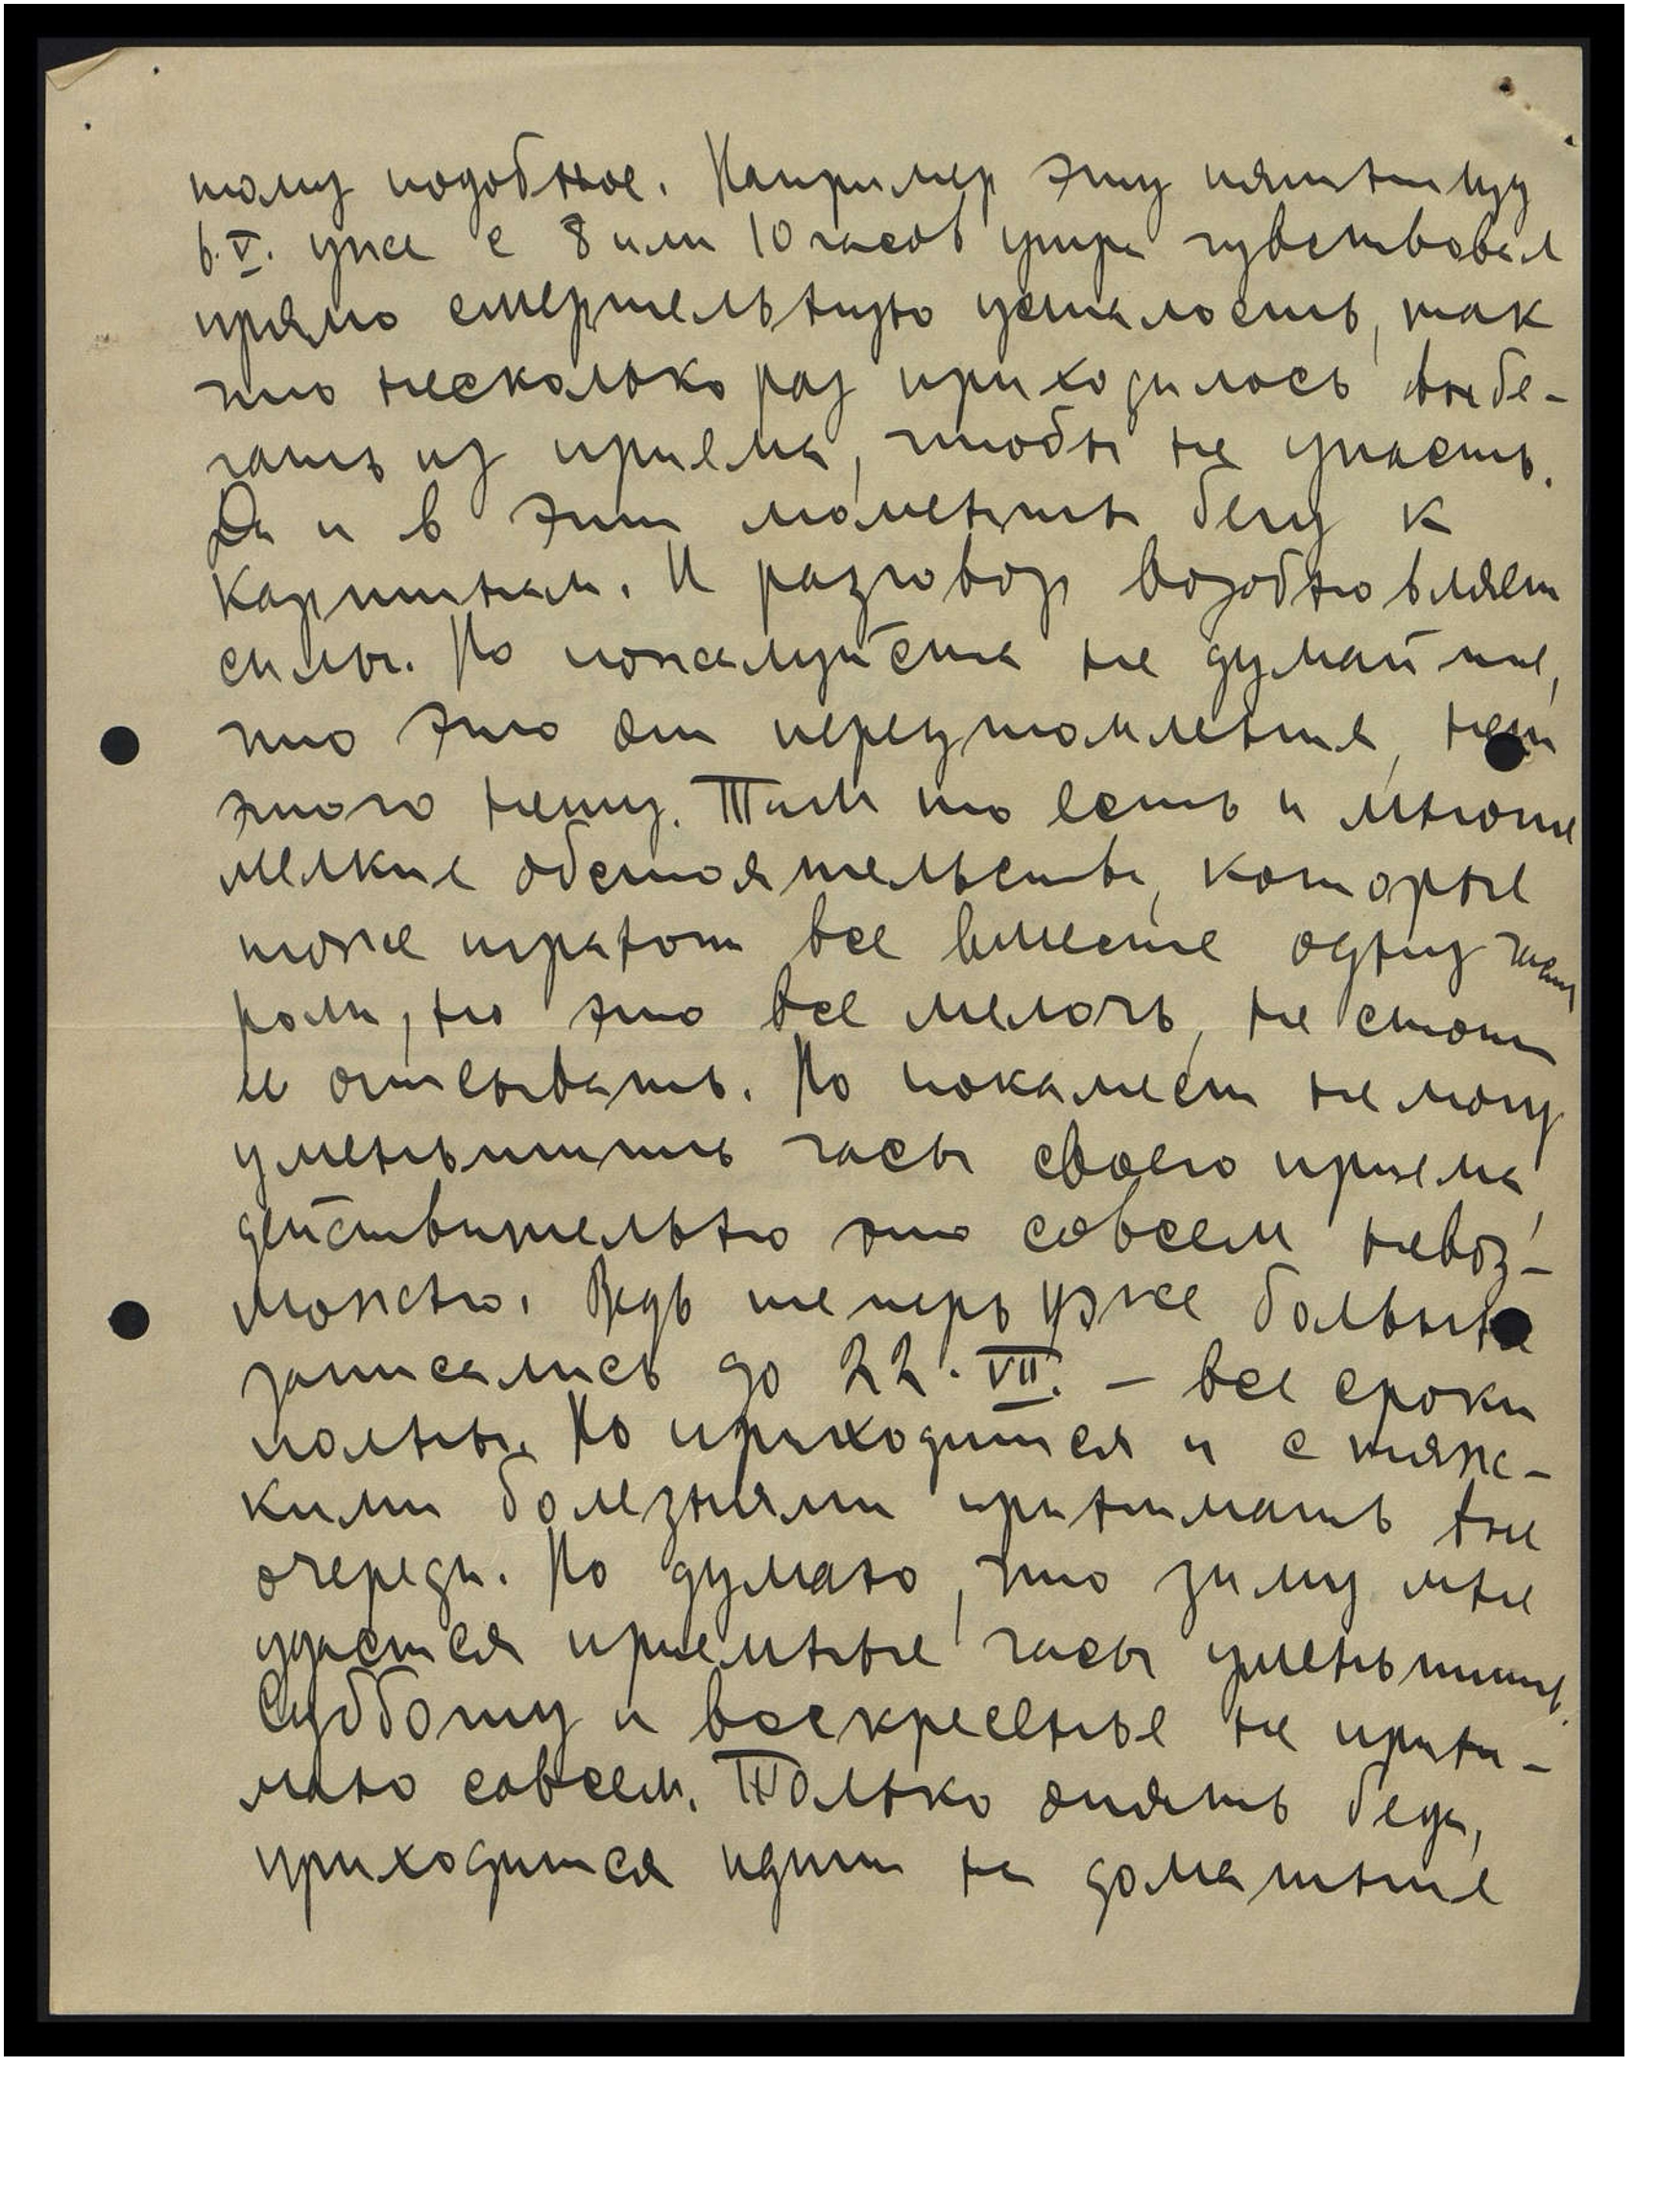 тому подобное. Например эту пятницу
6.V. уже с 8 или 10 часов утра чувствовал
прямо смертельную усталость, так
что несколько раз приходилось выбе-
гать из приема, чтобы не упасть.
Да и в эти моменты бегу к
картинам. И разговор возобновляет
силы. Но пожалуйста не думайте,
что это от переутомления, нет
этого нету. Там то есть и многие
мелкие обстоятельства, которые
тоже играют все вместе одну часть
роли, но это все мелочь, не стоит
и описывать. Но покамест не могу
уменьшить часы своего приема,
действительно это совсем невоз-
можно. Ведь теперь уже больные
записались до 22.VII. – все сроки
полны. Но приходится и с тяж-
кими болезнями принимать вне
очереди. Но думаю, что зиму мне
удастся приемные часы уменьшить.
Субботу и воскресенье не прини-
маю совсем. Только опять беда,
приходится идти на домашние